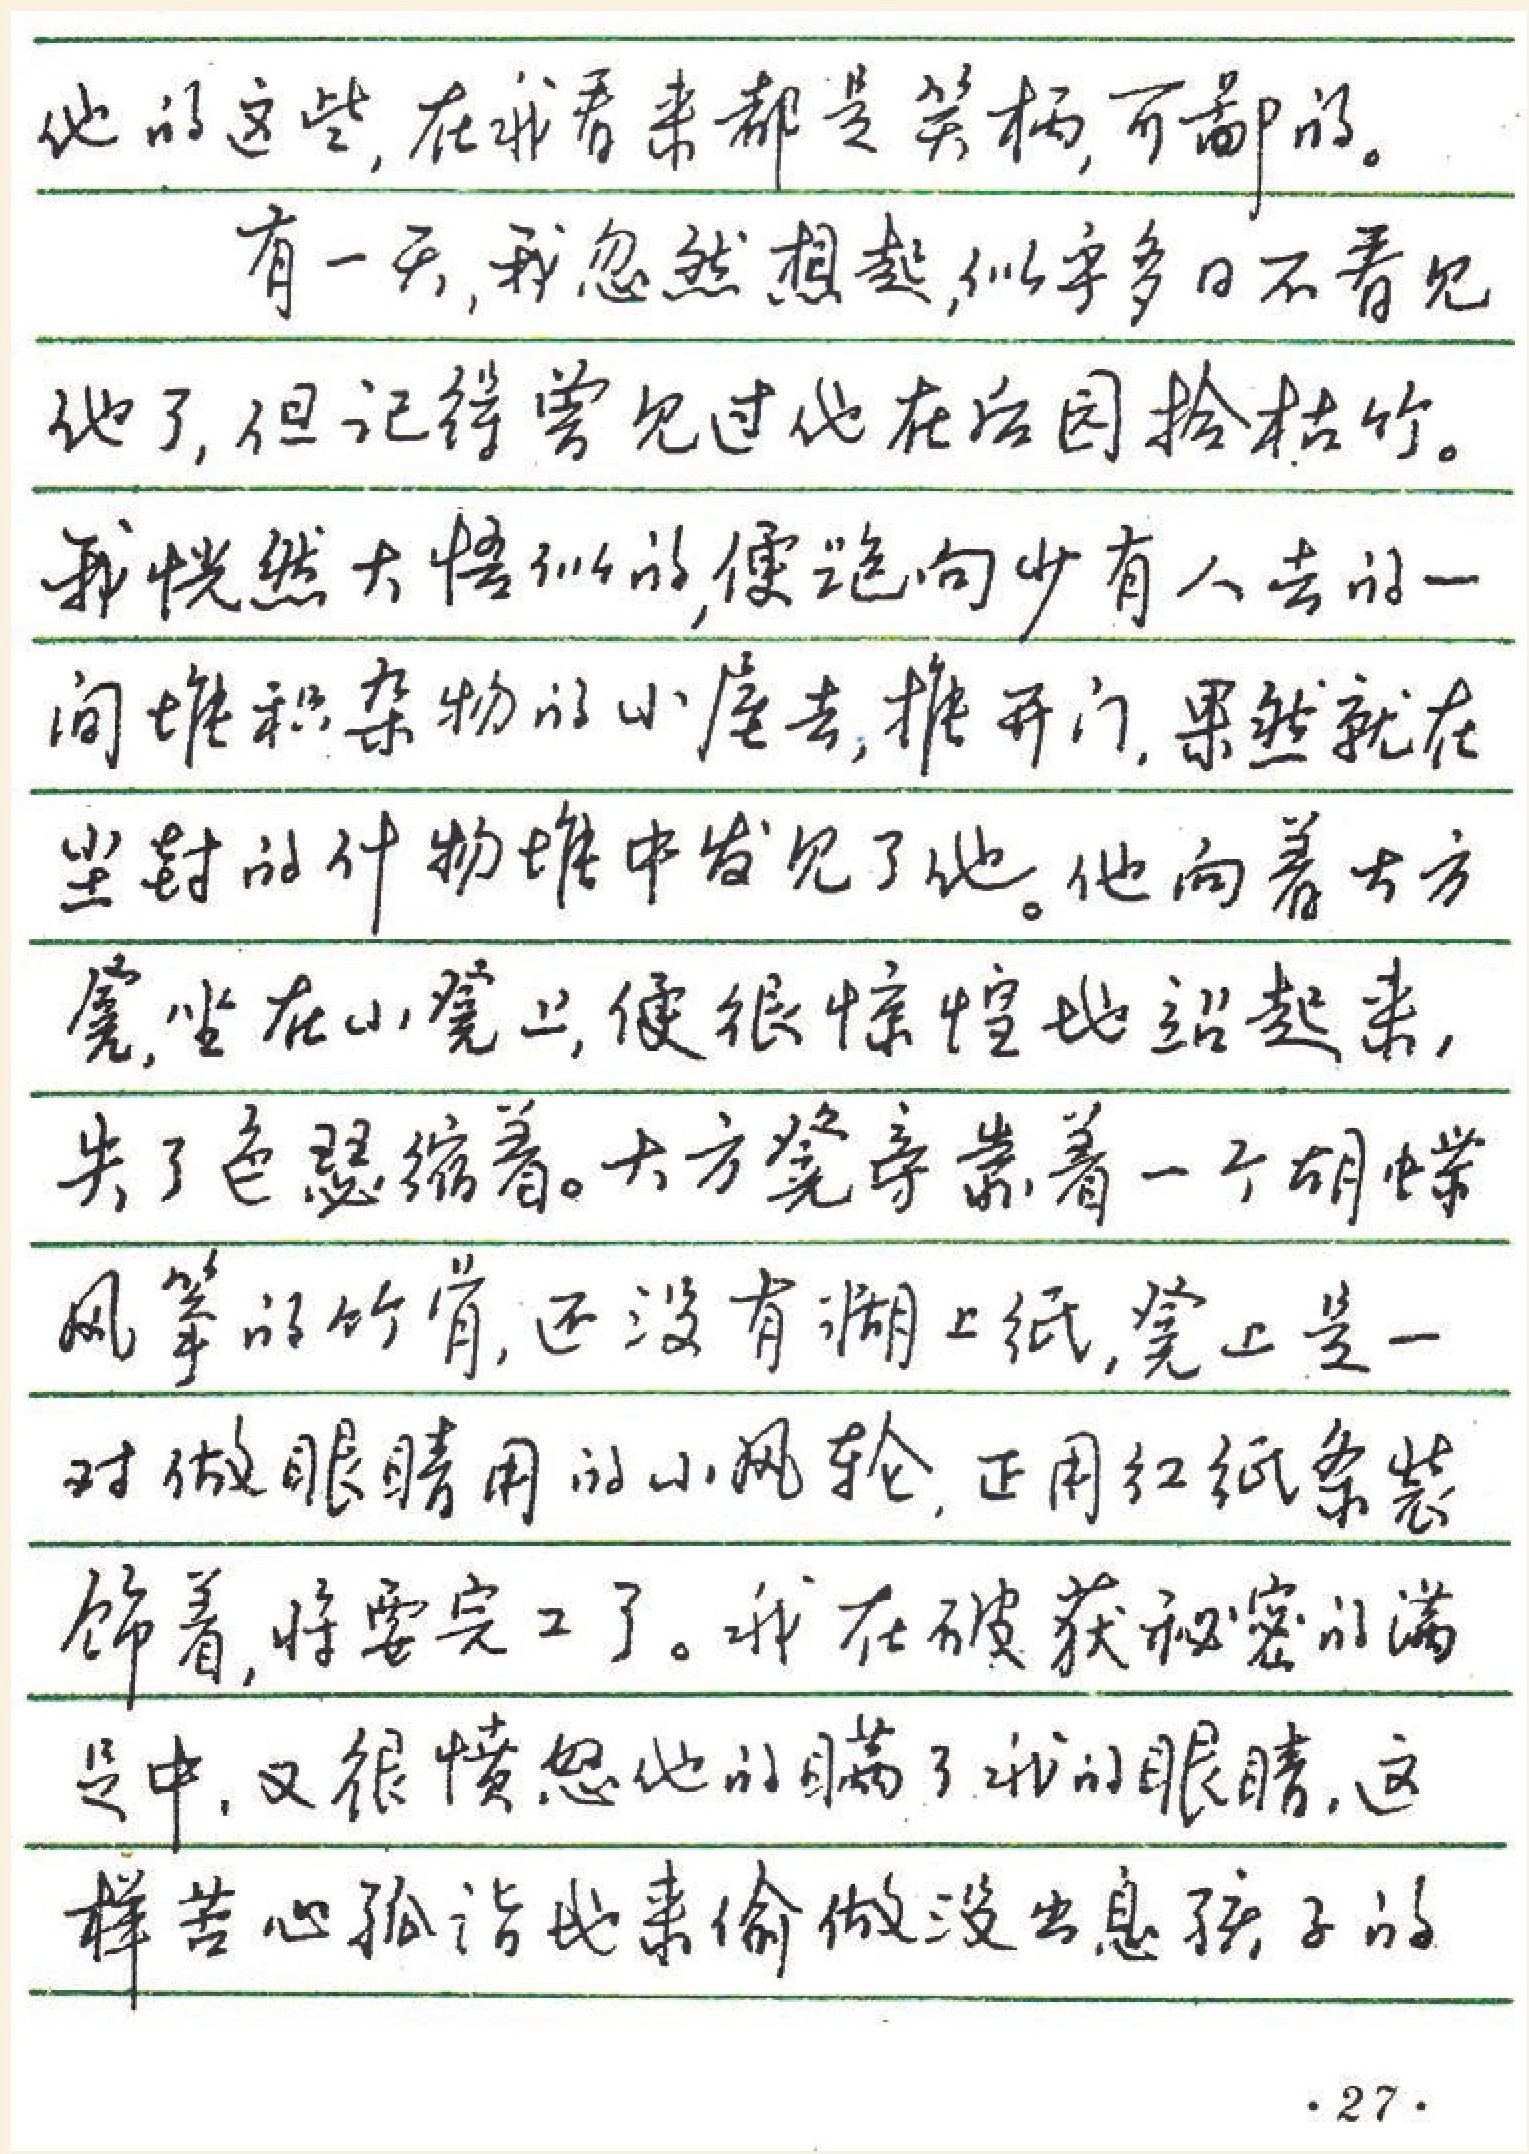 他的这些,在我看来都是笑柄,可鄙的。
有一天,我忽然想起,似乎多日不看见
他了,但记得曾见过他在后园拾枯竹。
我恍然大悟似的,便跑向少有人去的一
间堆积杂物的小屋去,推开门,果然就在
尘封的什物堆中发见了他。他向着大方
凳,坐在小凳上,便很惊惶地站起来,
失了色瑟缩着。大方凳旁靠着一个胡蝶
风筝的竹骨,还没有糊上纸,凳上是一
对做眼睛用的小风轮,正用红纸条装
饰着,将要完工了。我在破获秘密的满
足中,又很愤怒他的瞒了我的眼睛,这
样苦心孤诣地来偷做没出息孩子的
·27·